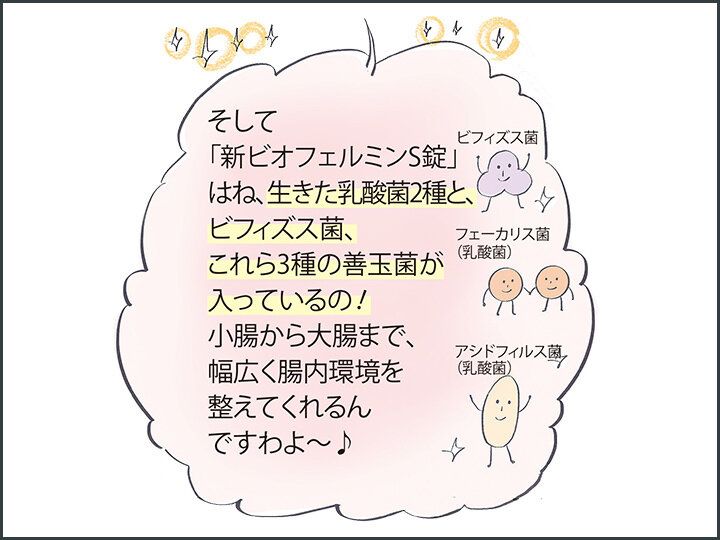 そして
「新ビオフェルミンS錠」
はね、生きた乳酸菌2種と、
ビフィズス菌、
これら3種の善玉菌が
入っているの！
小腸から大腸まで、
幅広く腸内環境を
整えてくれるん
ですわよ〜♪
ビフィズス菌
フェーカリス菌
（乳酸菌）
アシドフィルス菌
（乳酸菌）